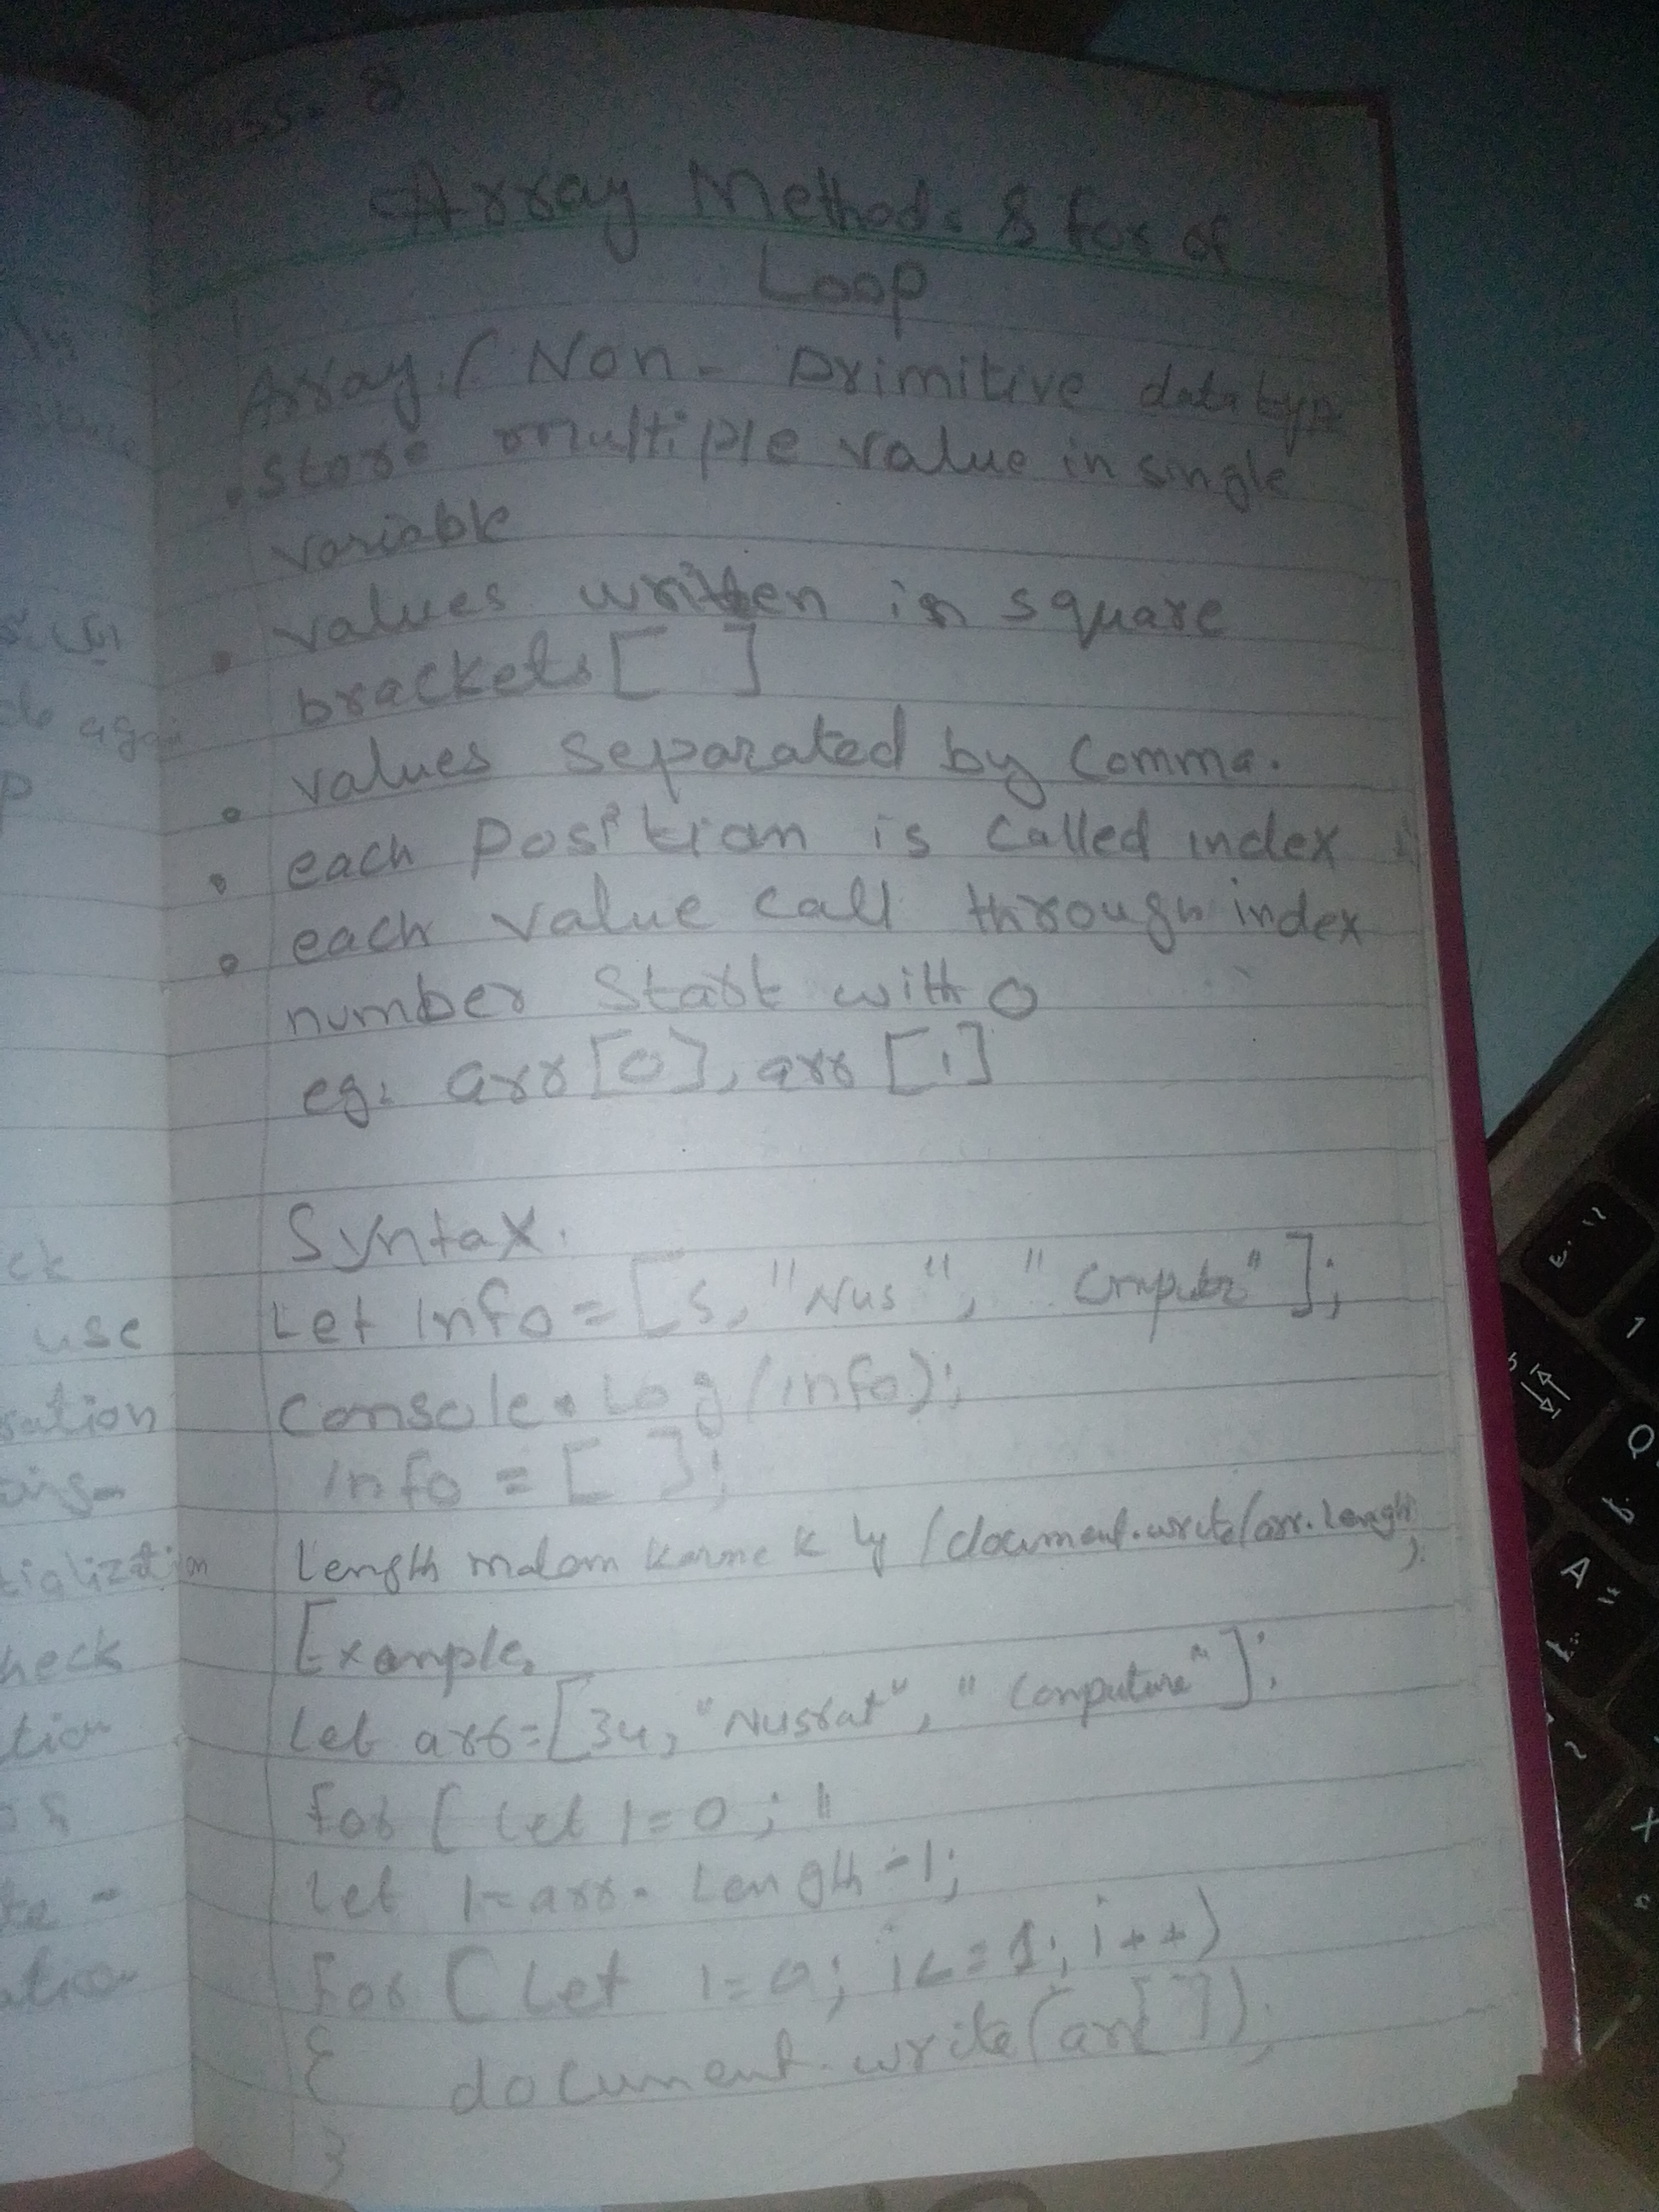 ss. 8
Array Methods & for of
Loop
Array. ( Non - Primitive data type
• store multiple value in single
variable
• values written in square
brackets [ ]
• values separated by Comma.
• each position is called index
• each value call through index
number start with 0
eg: arr [0], arr [1]
Syntax.
Let info = [5, "Nus", "Computer"];
Console.Log(info);
info = [ ];
Length malom karne k ly (document.write(arr.length
);
Example,
Let arr=[34, "Nusrat", "Computure"];
for ( let i=0;
let l=arr.Length-1;
for ( Let i=0; i<=1; i++)
{ document.write(arr[ ]);
}
ck
use
ation
tialization
heck
tion